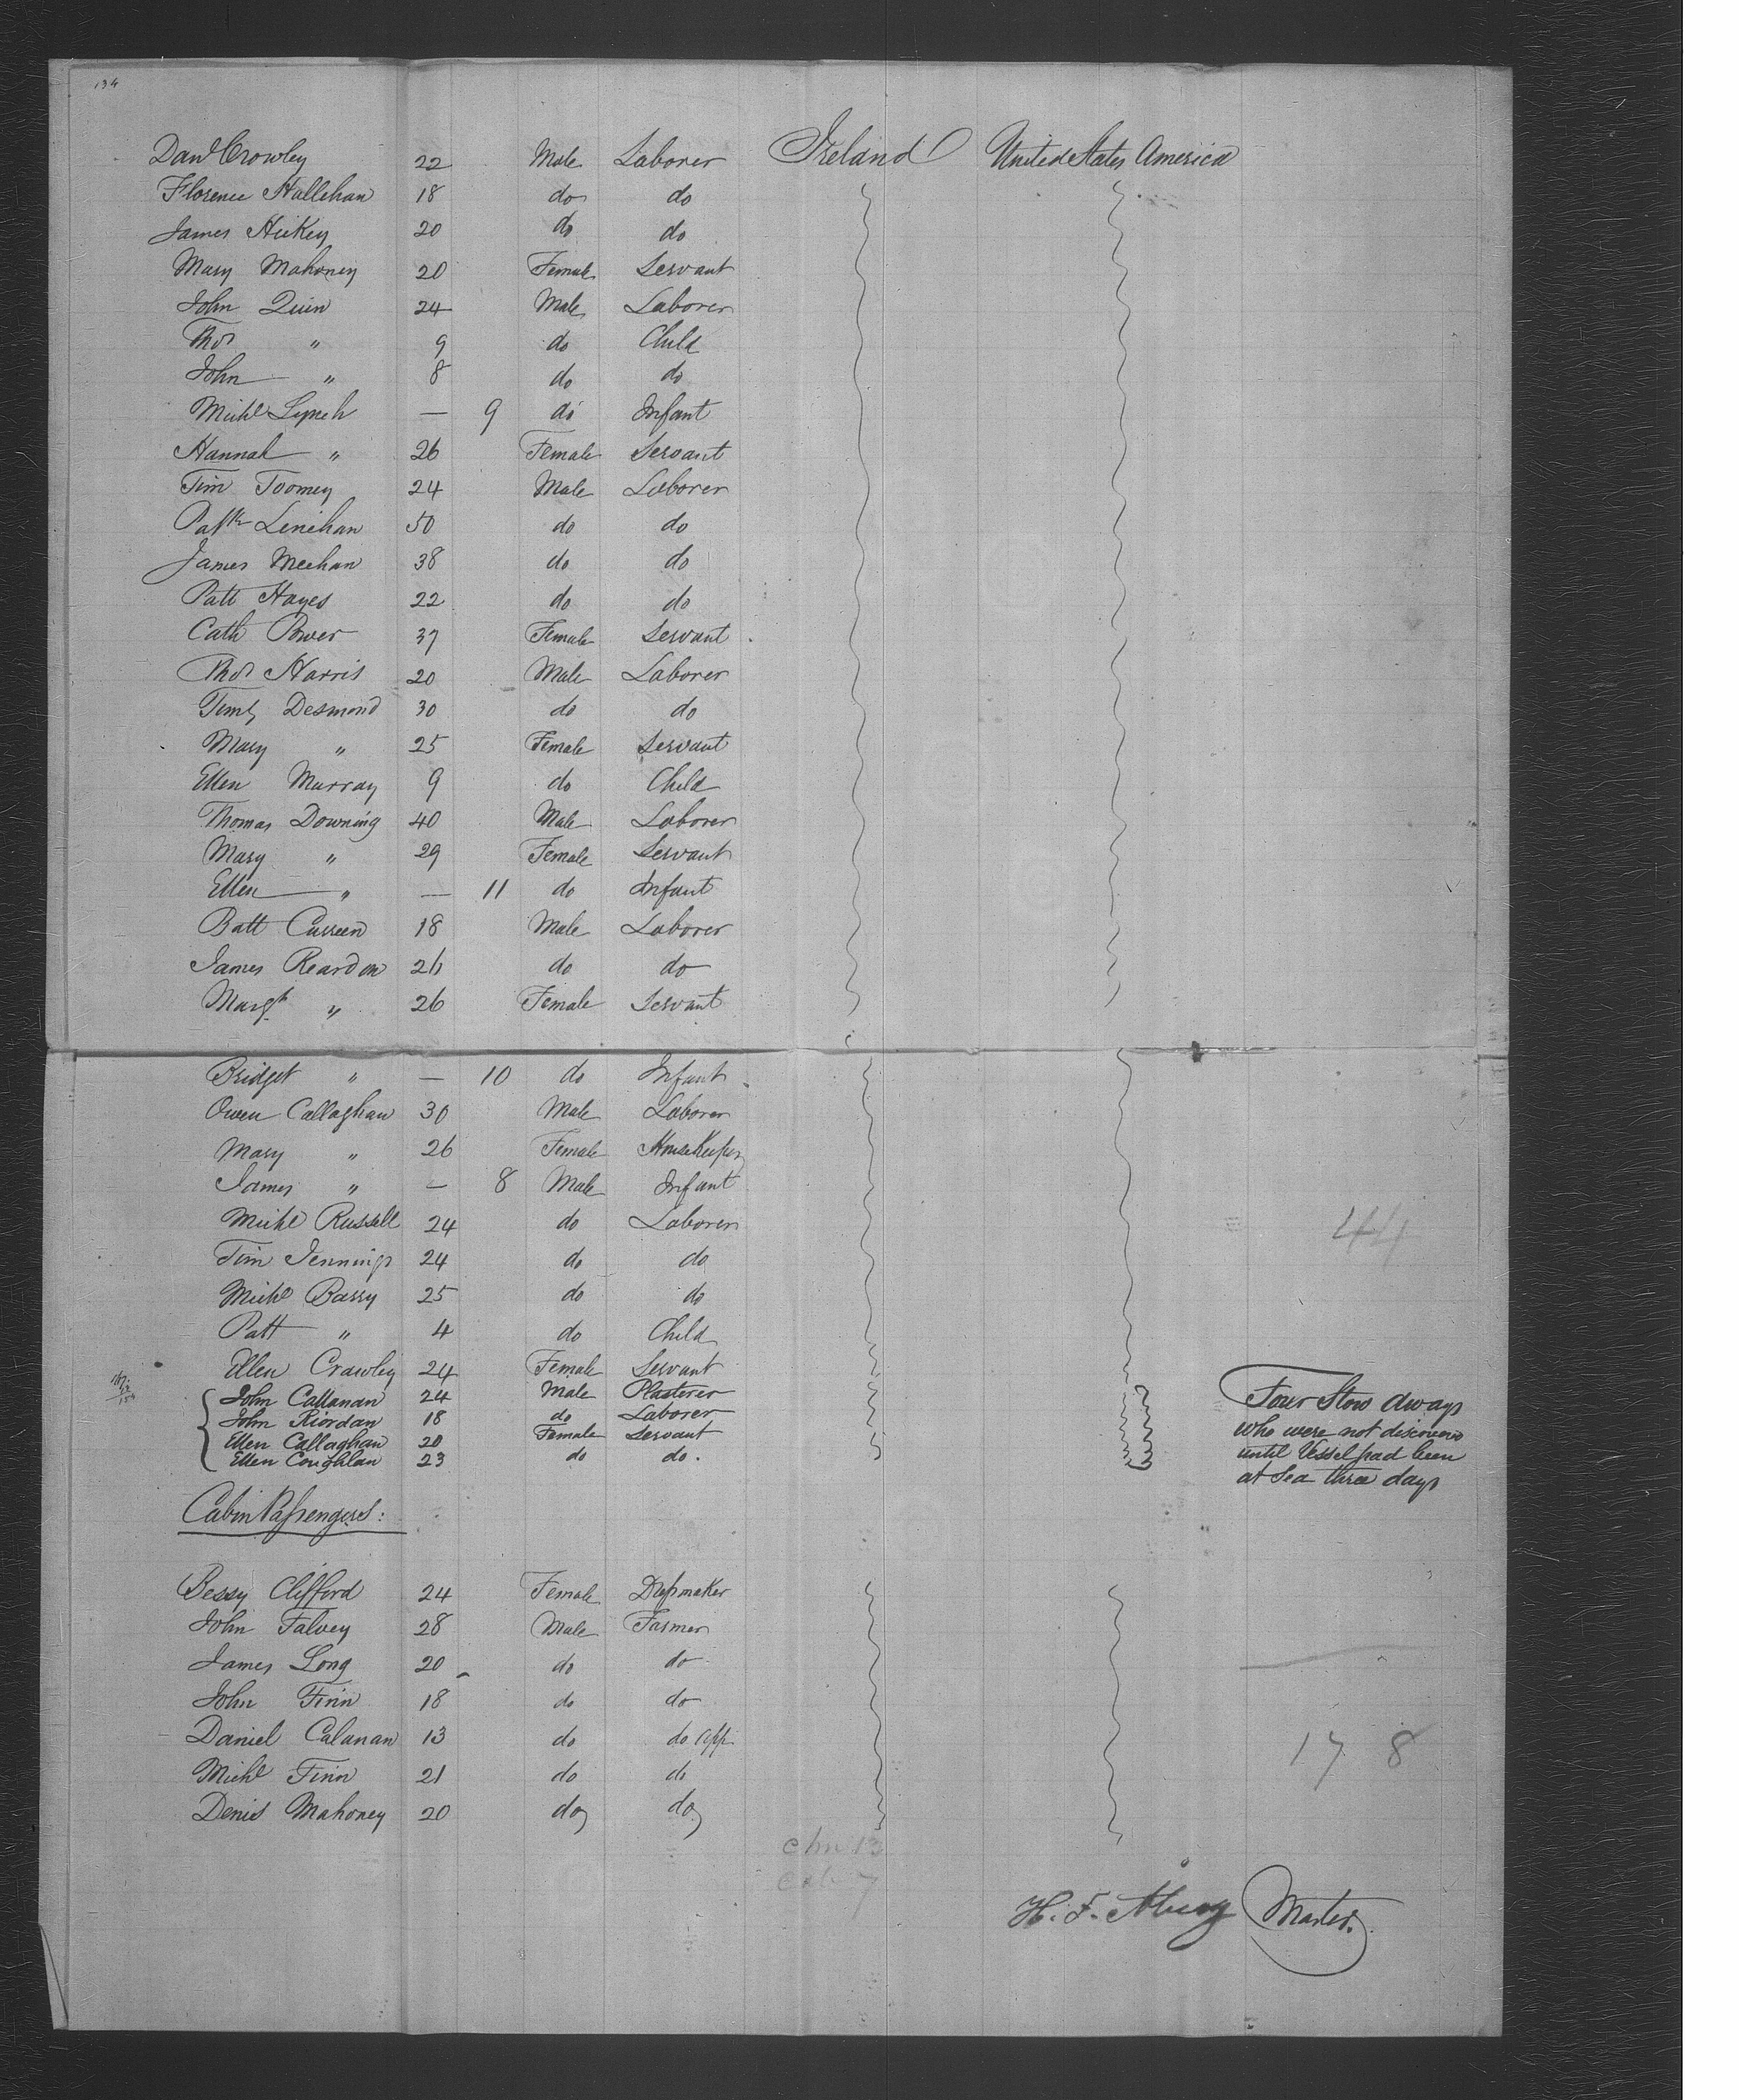 134
Danl Crowley 22 Male Laborer Ireland United States America
Florence Hallehan 18 do do
James Hickey 20 do do
Mary Mahoney 20 Female Servant
John Quin 24 Male Laborer
Thos " 9 do Child
John " 8 do do
Michl Lynch — 9 do Infant
Hannah " 26 Female Servant
Tim Toomey 24 Male Laborer
Patk Linehan 50 do do
James Meehan 38 do do
Patt Hayes 22 do do
Cath Power 37 Female Servant
Thos Harris 20 Male Laborer
Timy Desmond 30 do do
Mary " 25 Female Servant
Ellen Murray 9 do Child
Thomas Downing 40 Male Laborer
Mary " 29 Female Servant
Ellen " — 11 do Infant
Batt Curreen 18 Male Laborer
James Reardon 26 do do
Margt " 26 Female Servant
Bridget " — 10 do Infant
Owen Callaghan 30 Male Laborer
Mary " 26 Female HouseKeeper
James " — 8 Male Infant
Michl Russell 24 do Laborer
44
Tim Jennings 24 do do
Michl Barry 25 do do
Patt " 4 do Child
Ellen Crawley 24 Female Servant
John Callanan 24 Male Plasterer Four Stow aways
John Riordan 18 do Laborer who were not discovered
Ellen Callaghan 20 Female Servant until Vessel had been
Ellen Coughlan 23 do do. at Sea three days
Cabin Passengers:
Bessy Clifford 24 Female Dressmaker
John Falvey 28 Male Farmer
James Long 20 do do
John Finn 18 do do
Daniel Calanan 13 do do App
17 8
Michl Finn 21 do do
Denis Mahoney 20 do do
chn 13
cab 7
H. F. Master.